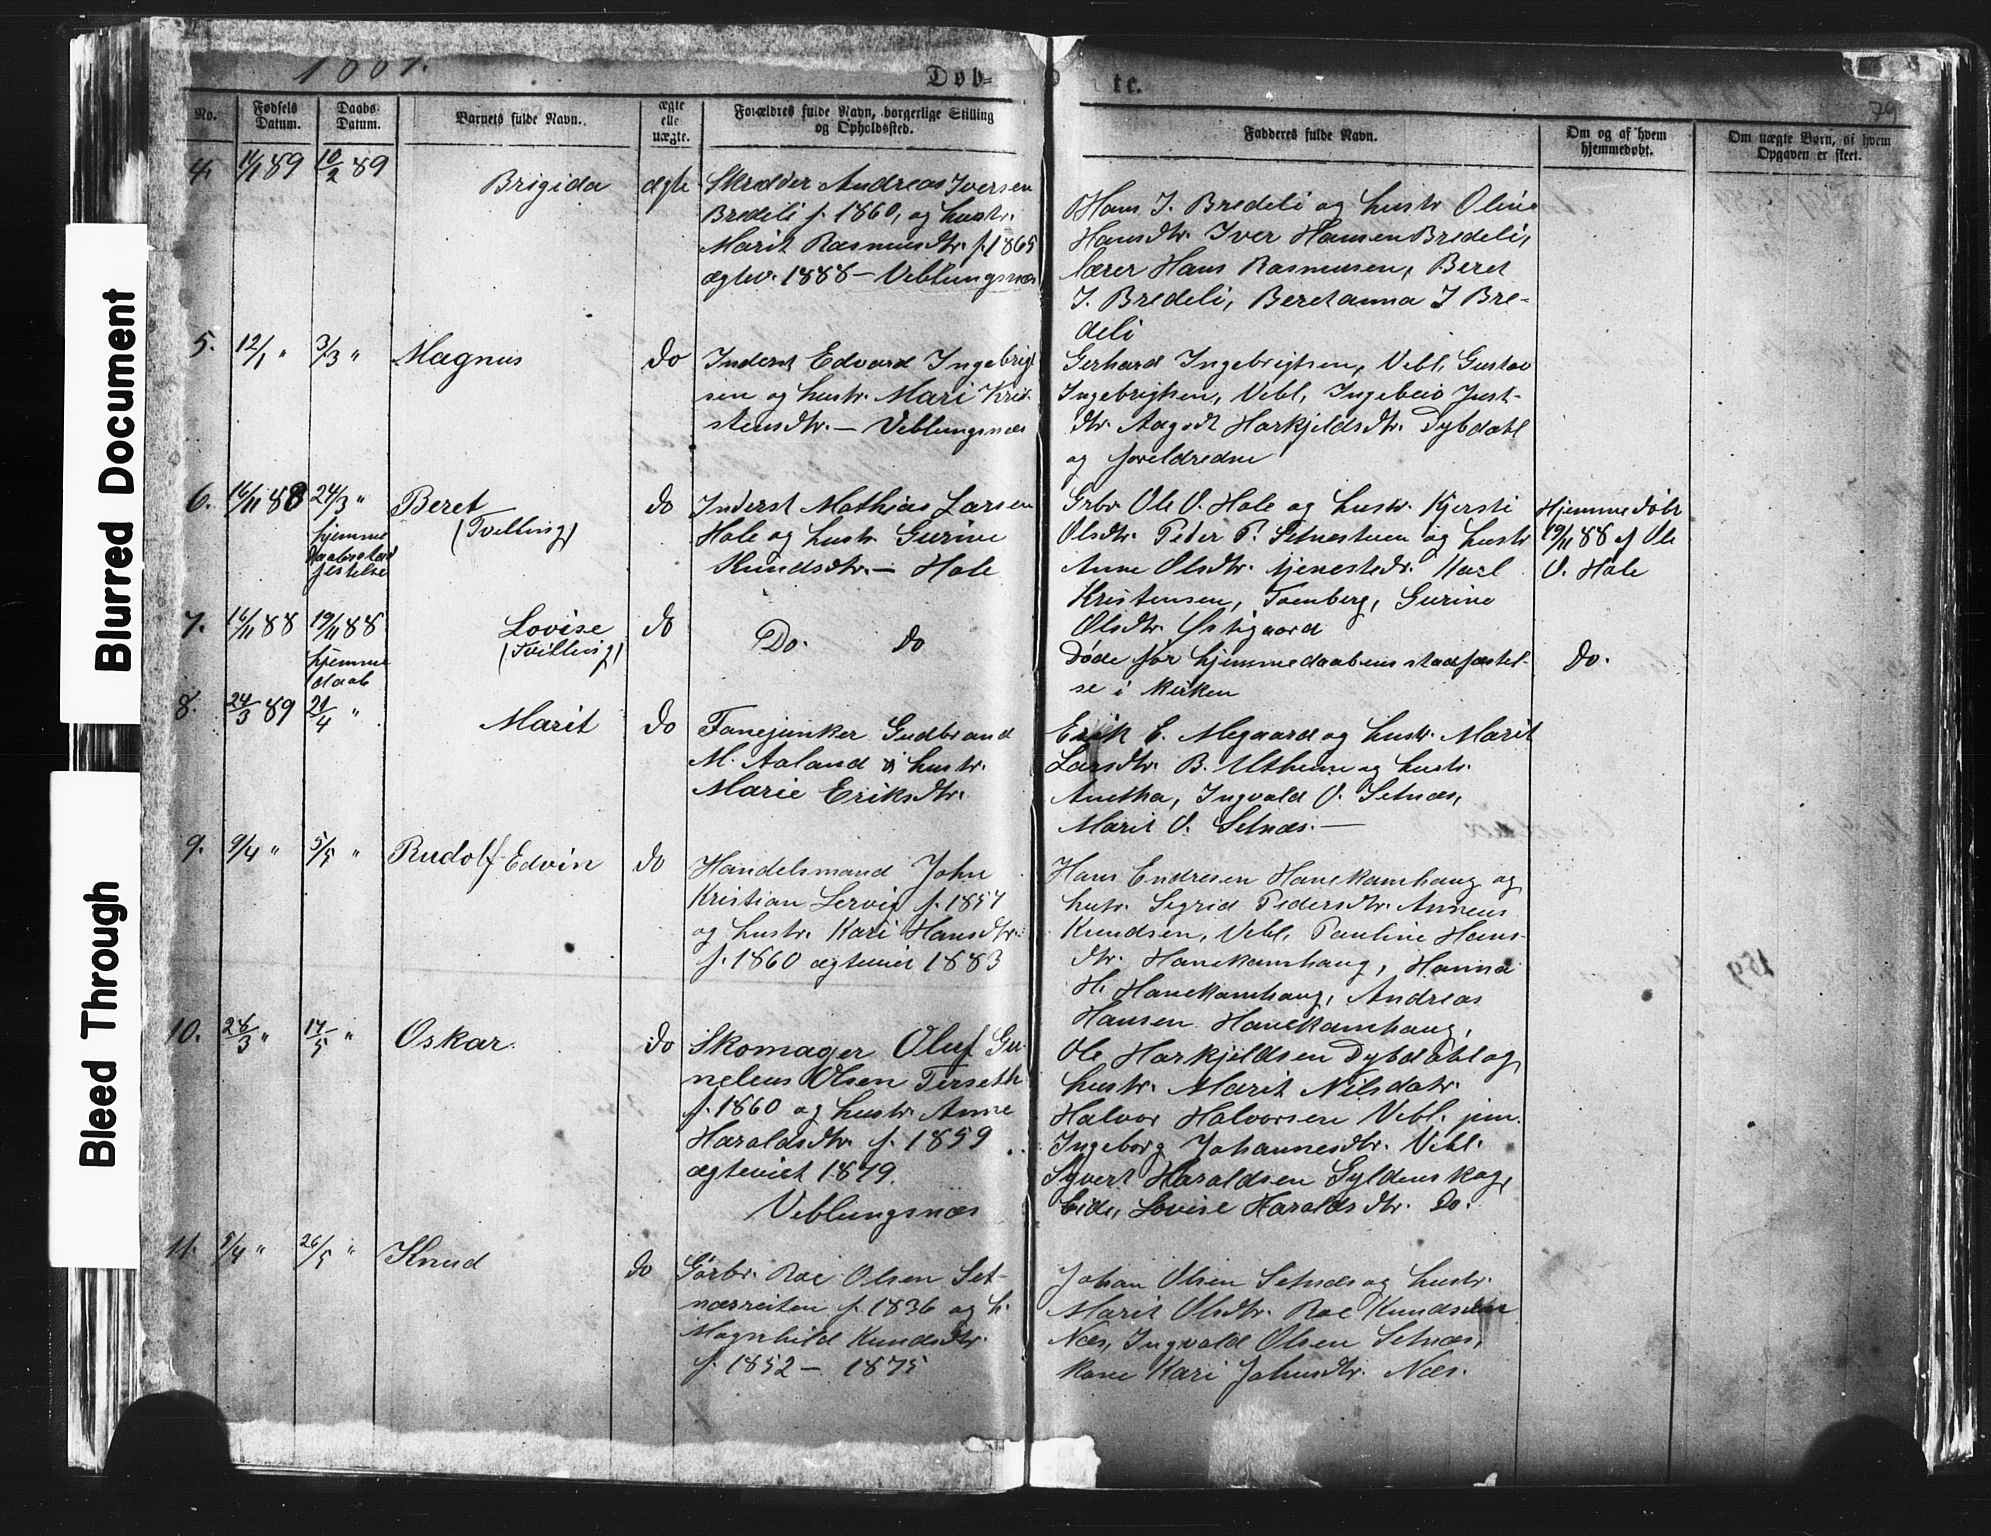 Blurred Document
Bleed Through
Døb-
te.
79
No.
Fødsels Datum.
Daabs-Datum.
Barnets fulde Navn.
ægte elle uægte.
Forældres fulde Navn, borgerlige Stilling og Opholdssted.
Fadderes fulde Navn.
Om og af hvem hjemmedøbt.
Om uægte Børn, af hvem Opgaven er skeet.
4. 11/1 89 10/2 89 Brigida ægte
Skrædder Andreas Iversen
Bredeli f. 1860, og hustr.
Marit Rasmusdtr. f. 1865
ægtev. 1888 — Veblungsnæs
Hans I. Bredeli og hustr Oline
Hansdtr. Iver Hansen Bredeli,
lærer Hans Rasmussen, Beret
I. Bredeli, Beretanna I Bre-
deli
5. 12/1 " 3/3 " Magnus do
Inderst Edvard Ingebrigt
sen og hustr. Mari Kri-
stensdtr. — Veblungsnæs
Gerhard Ingebrigtsen, Vebl, Gustav
Ingebrigtsen, Vebl,
dtr. Harkjeldsdtr. Dybdahl
og foreldredne
6. 16/11 88 24/3 " hjemme
Beret
(Tvilling)
do
Inderst Mathias Larsen
Hole og hustr Gurine
Knudsdtr. — Hole
Grbr Ole O. Hole og hustr. Kjersti
Olsdtr. Peder P. Setnesteen og hustr
Anne Olsdtr. tjenestedr. Karl
Kristensen, Tomberg, Gurine
Olsdtr. Østigaard
Hjemmedøbt
19/11 88 af Ole
O. Hole
7. 16/11 88 19/11 88
hjemme
daab
Lovise
(Tvilling)
do
Do. do
Døde før hjemmedaabens stadfæstel-
se i kirken
Do.
8. 24/3 89 21/4 " Marit do
Fanejunker Gudbrand
M. Aaland og hustr.
Marie Eriksdtr.
Erik E. Megaard og hustr. Marit
Larsdtr. B. Utheim og hustr.
Anetha, Ingvald O. Setnæs,
Marit O. Setnæs. —
9. 9/4 " 5/5 " Rudolf Edvin do
Handelsmand John
Kristian Lervig f. 1857
og hustr. Kari Hansdtr.
f. 1860 ægteviet 1883
Hans Endresen Hanekamhaug og
hustr. Sigrid Pedersdtr.
Knudsen, Vebl, Pauline Hans-
dtr. Hanekamhaug, Hanna
H. Hanekamhaug, Andreas
Hansen Hanekamhaug,
10. 28/3 " 17/5 " Oskar. do
Skomager Oluf
Olsen Terseth
f. 1860 og hustr. Anne
Haraldsdtr. f. 1859
ægteviet 1879.
Veblungsnæs
Ole Harkjeldsen Dybdahl og
hustr. Marit Nilsdatr.
Halvor Halvorsen Vebl. jun.
Ingeborg Johannesdtr. Vebl.
Syvert Haraldsen Gyldenskog,
Eide, Lovise Haraldsdtr. Do.
11. 5/4 " 26/5 " Knud do
Gårbr. Roe Olsen Set-
næsreiten f. 1836 og h.
Magnhild Knudsdtr.
f. 1852 — 1875
Johan Olsen Setnæs og hustr.
Marit Olsdtr. Roe Knudsen
Næs, Ingvald Olsen Setnæs,
kone Kari Johnsdtr. Næs.